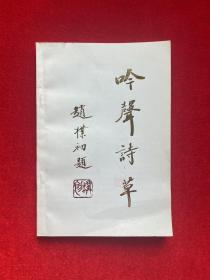 吟聲詩草
趙樸初題